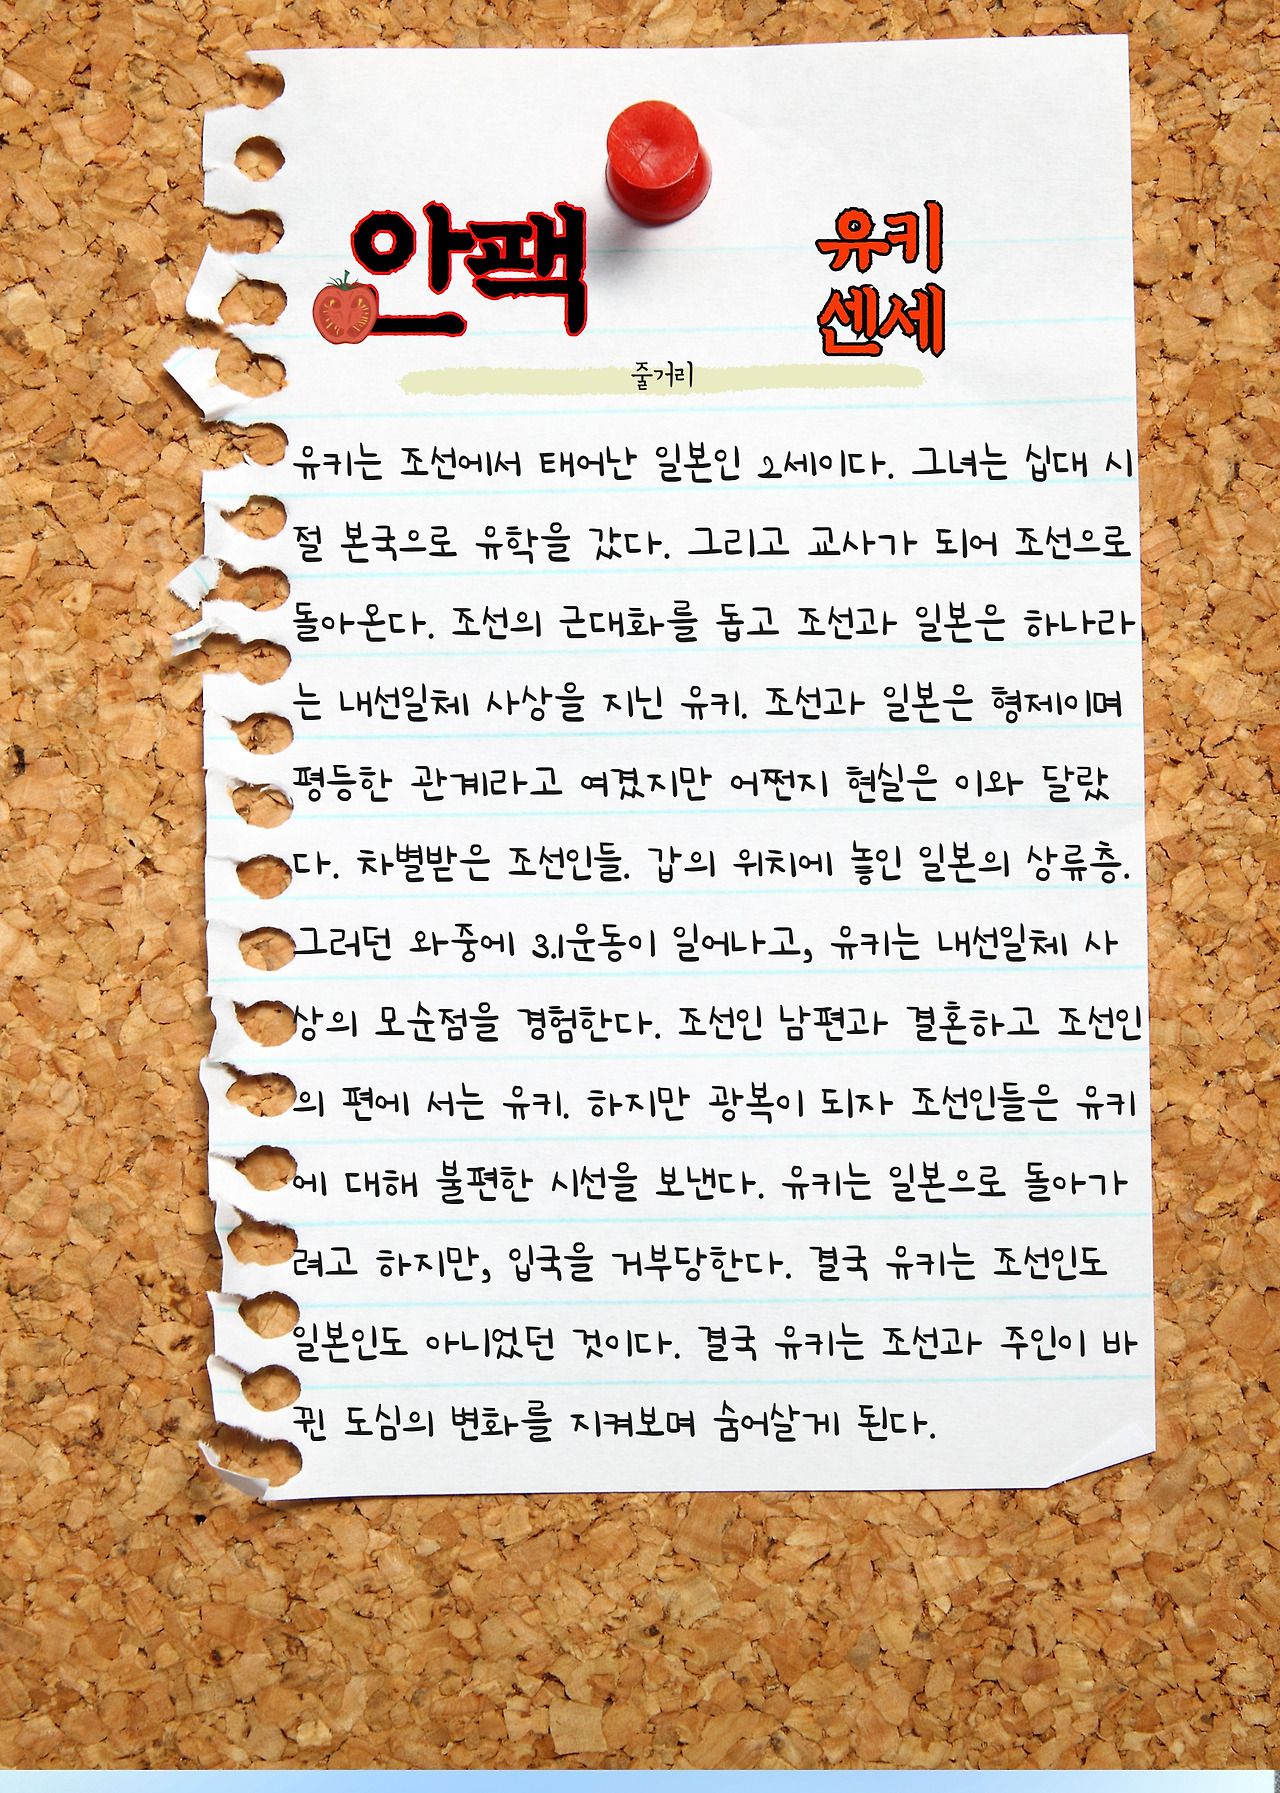 안팩
유키
센세
줄거리
유키는 조선에서 태어난 일본인 2세이다. 그녀는 십대 시
절 본국으로 유학을 갔다. 그리고 교사가 되어 조선으로
돌아온다. 조선의 근대화를 돕고 조선과 일본은 하나라
는 내선일체 사상을 지닌 유키. 조선과 일본은 형제이며
평등한 관계라고 여겼지만 어쩐지 현실은 이와 달랐
다. 차별받은 조선인들. 갑의 위치에 놓인 일본의 상류층.
그러던 와중에 3.1운동이 일어나고, 유키는 내선일체 사
상의 모순점을 경험한다. 조선인 남편과 결혼하고 조선인
의 편에 서는 유키. 하지만 광복이 되자 조선인들은 유키
에 대해 불편한 시선을 보낸다. 유키는 일본으로 돌아가
려고 하지만, 입국을 거부당한다. 결국 유키는 조선인도
일본인도 아니었던 것이다. 결국 유키는 조선과 주인이 바
뀐 도심의 변화를 지켜보며 숨어살게 된다.